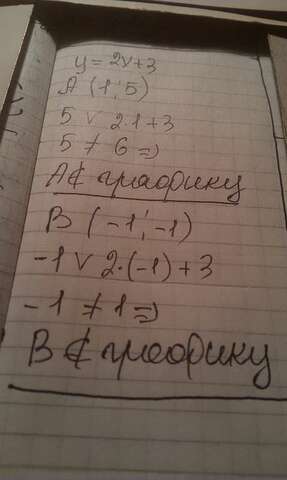 y = 2x+3
A (1; 5)
5 ∨ 2·1+3
5 ≠ 6 ⇒
A ∉ графику
B (-1; -1)
-1 ∨ 2·(-1)+3
-1 ≠ 1 ⇒
B ∉ графику